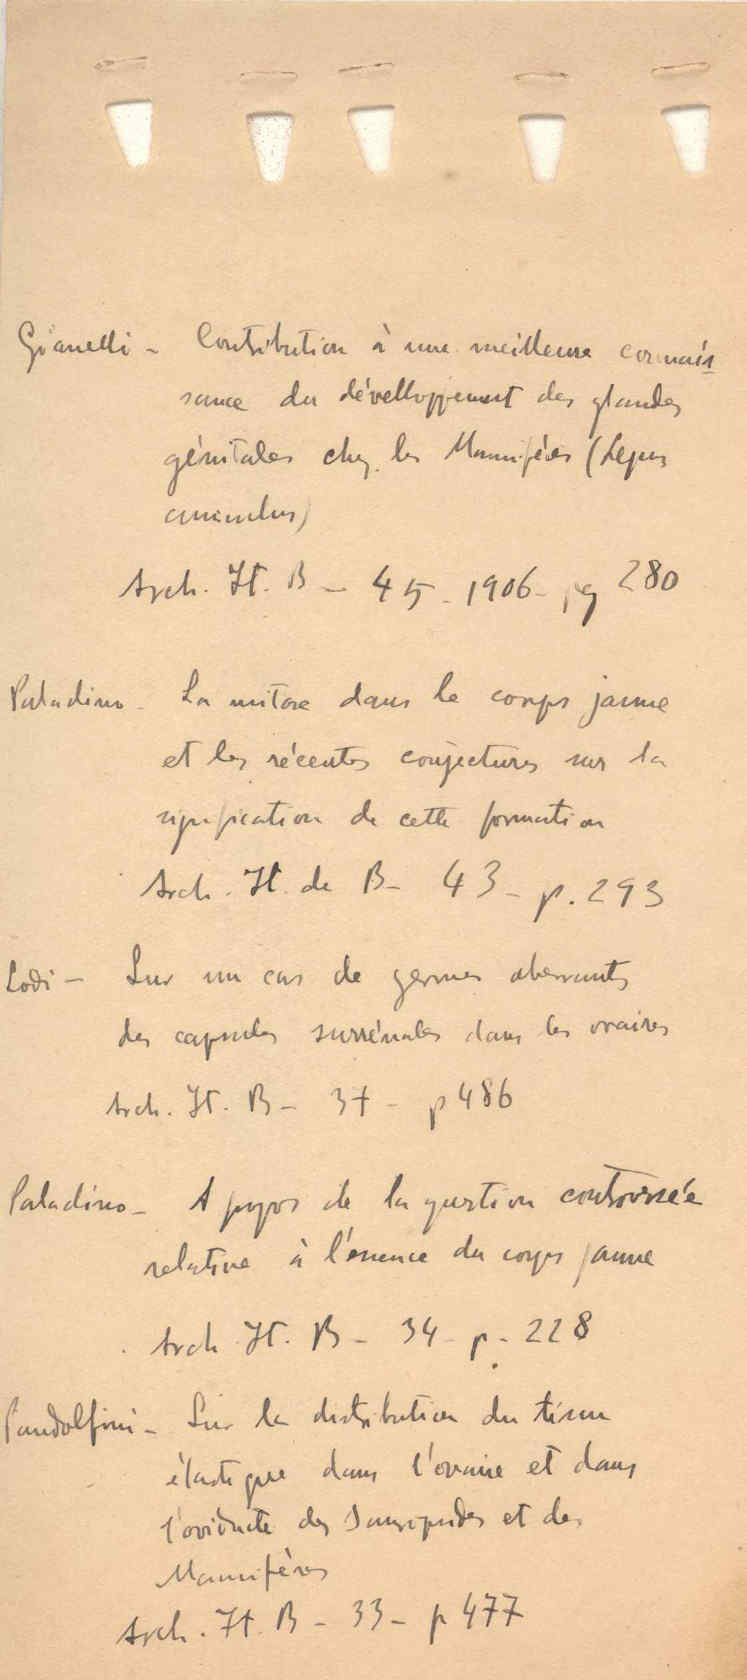 Gianelli - Contribution à une meilleure connais
sance du dévelloppement des glandes
génitales chez les Mammifères (Lepus
cuniculus)
Arch. It. B - 45 - 1906 - pg 280
Paladino - La mitose dans le corps jaune
et les récentes conjectures sur la
signification de cette formation
Arch. It. de B - 43 - p. 293
Lodi - Sur un cas de germes aberrants
des capsules surrénales dans les ovaires
Arch. It. B - 37 - p 486
Paladino - A propos de la question controversée
relative à l'essence du corps jaune
Arch It. B - 34 - p. 228
Pandolfini - Sur la distribution du tissu
élastique dans l'ovaire et dans
l'oviducte des Sauropsides et des
Mammifères
Arch. It. B - 33 - p 477